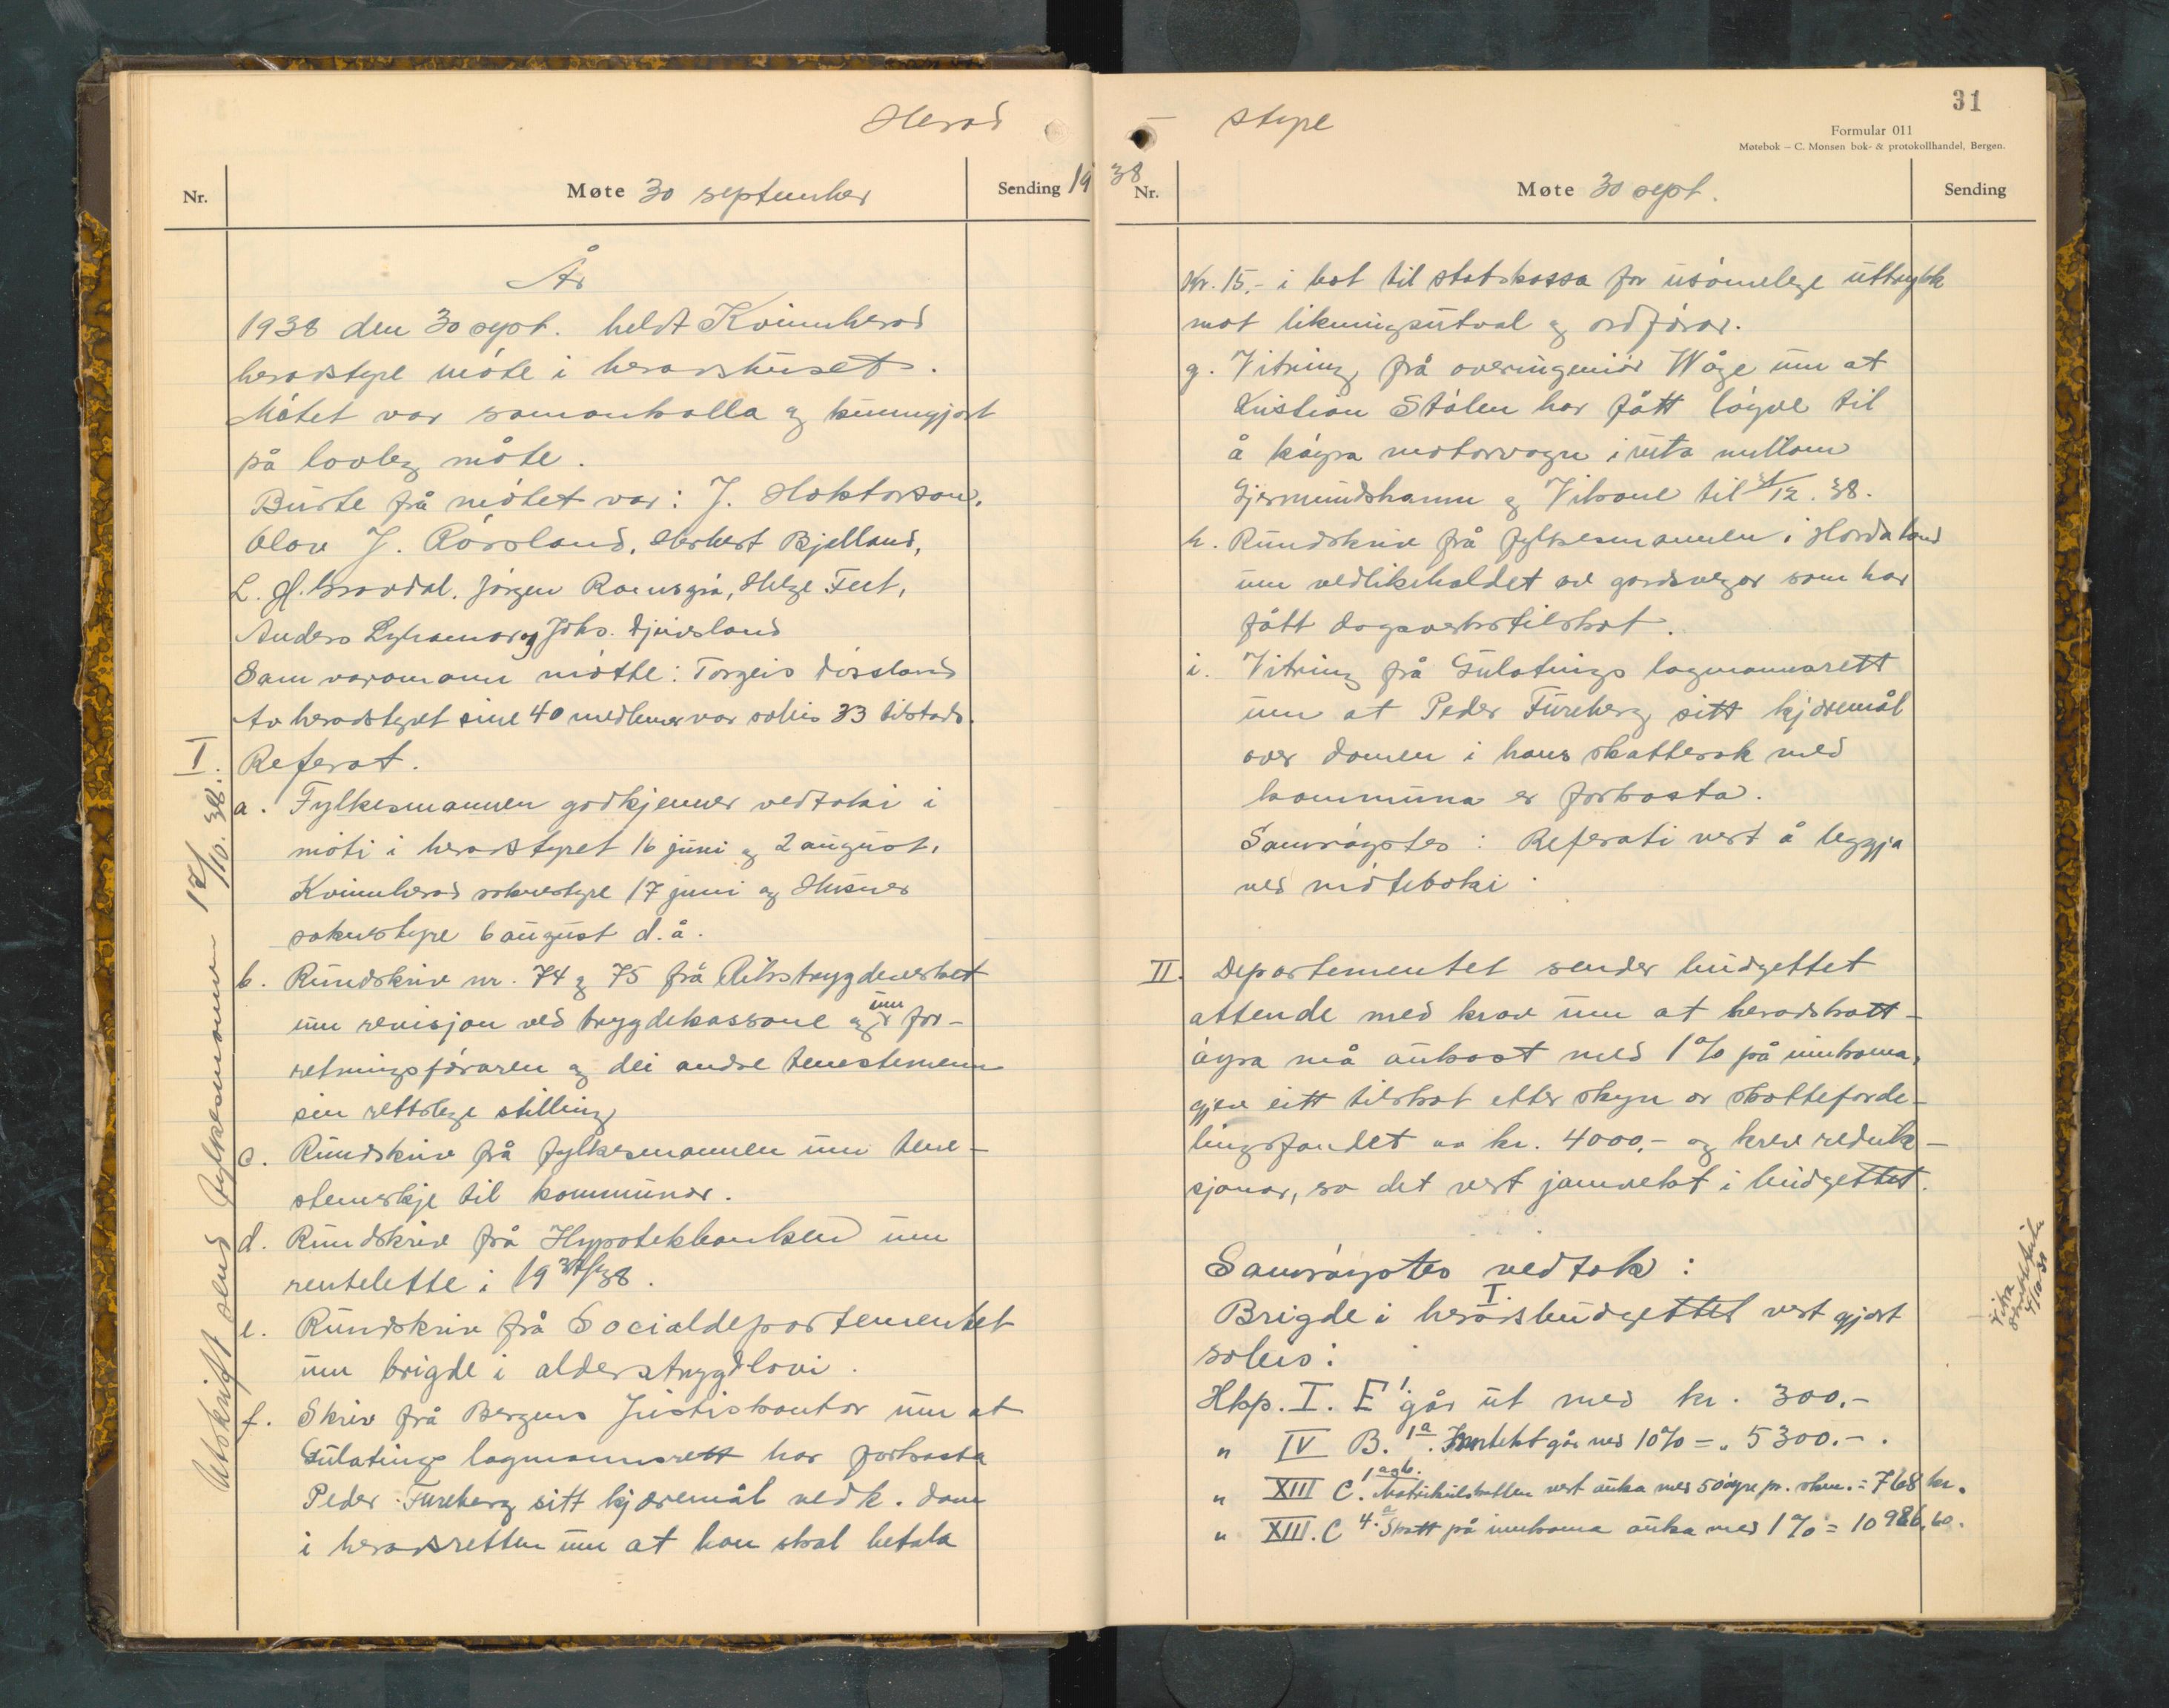 Herad
Nr.
Møte 30 september
Sending 19
År
1938 den 30 sept. heldt Kvinnherad
heradstyre møte i heradshuset.
Møtet var samankalla og kunngjort
på lovleg måte.
Burte frå møtet var: J. Haktorson,
Olav J. Røssland, Herbert Bjelland,
L. H. Bravdal, Jørgen Ramsgrå, Helge Feet,
Anders Lyhamar og Johs. Djuvsland
Sam varamann møtte: Torgeis
Av heradstyret sine 40 medlemer var soleis 33 tilstads.
I. Referat.
a. Fylkesmannen godkjenner vedtaki i
møti i heradstyret 16 juni og 2 august,
Kvinnherad soknestyre 17 juni og Husnes
soknestyre 6 august d.å.
b. Rundskriv nr. 74 og 75 frå Rikstrygdeverket
um revisjon ved trygdekassone og um for-
retningsføraren og dei andre tenestemenn
sin rettslege stilling
c. Rundskriv frå fylkesmannen um tene-
stemerkje til kommunar.
d. Rundskriv frå Hypotekbanken um
rentelette i 1937/38.
e. Rundskriv frå Socialdepartementet
um brigde i alderstrygdlovi.
f. Skriv frå Bergens Justiskontor um at
Gulatings lagmannsrett har forkasta
Peder Fureberg sitt kjæremål vedk. dom
i heradsretten um at han skal betala
Utskrift send fylkesmannen 17/10.38.
styre
31
Formular 011
Møtebok – C. Monsen bok- & protokollhandel, Bergen.
38
Nr.
Møte 30 sept.
Sending
Kr. 15.- i bot til statskassa for usømelege uttrykk
mot likningsutval og ordførar.
g. Vitring frå overingeniør Wåge um at
Kristian Stølen har fått løyve til
å køyra motorvogn i ruta millom
Gjermundshamn og Vikane til 31/12.38.
h. Rundskriv frå fylkesmannen i Hordaland
um vedlikehaldet av gardsvegar som har
fått dagsverkstilskot.
i. Vitring frå Gulatings lagmannsrett
um at Peder Fureberg sitt kjæremål
over domen i hans skattesak med
kommuna er forkasta.
Samrøystes: Referati vert å leggja
ved møteboki.
II. Departementet sender budgettet
attende med krav um at heradskatt-
øyra må aukast med 1% på innkoma,
gjev eitt tilskot etter skyn or skatteforde-
lingsfondet på kr. 4000,- og krev reduk-
sjonar, so det vert jamvekt i budgettet.
Samrøystes vedtak:
I.
Brigde i heradsbudgettet vert gjort
soleis:
Hkp. I. E 1. går ut med kr. 300.-
" IV B. 1a. Inntekt går ned 10% = " 5300.-.
" XIII C. 1 a og b. Matrikulskatten vert auka med 50 øyre pr. skm. = 768 kr.
" XIII. C 4.a Skatt på innkoma auka med 1% = 10986,60.